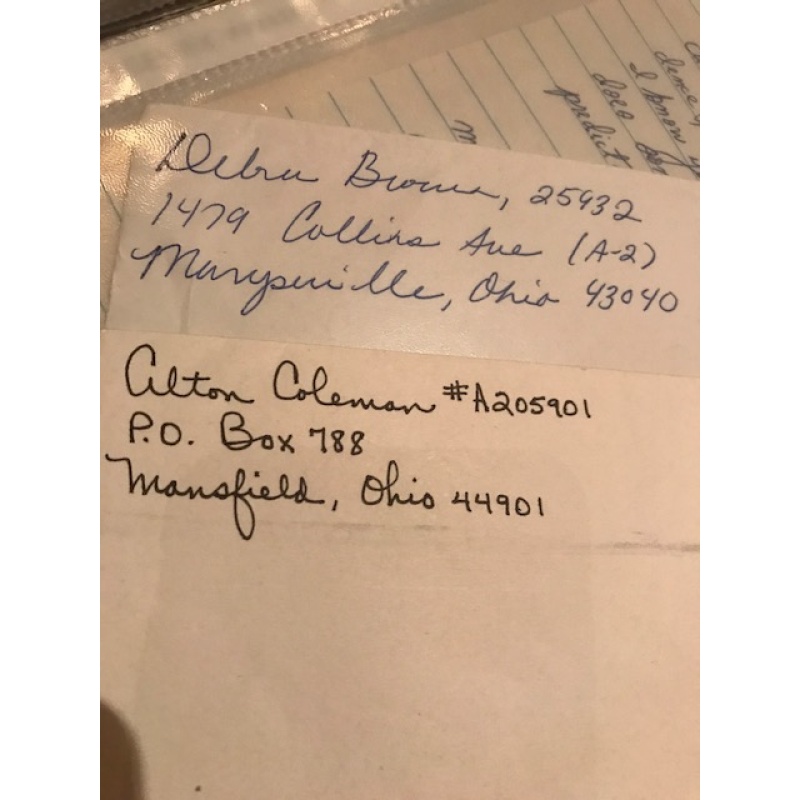 Debra Brown, 25932
1479 Collins Ave (A-2)
Marysville, Ohio 43040
Alton Coleman #A205901
P.O. Box 788
Mansfield, Ohio 44901
I know
does
predict